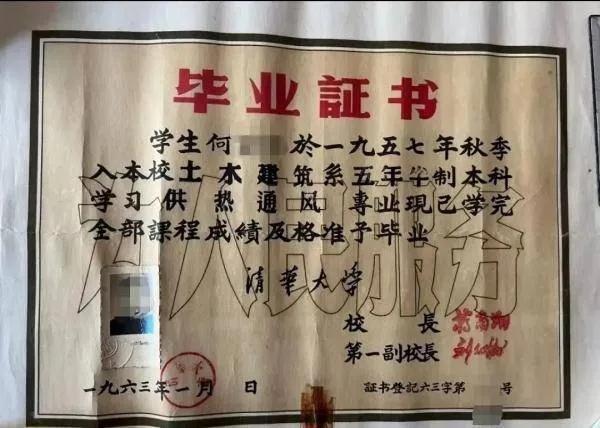 毕业証书
学生何 於一九五七年秋季
入本校土木建筑系五年半制本科
学习供热通风專业現已学完
全部課程成績及格准予毕业
为人民服务
清華大学
校長 蒋南翔
第一副校長 刘仙洲
一九六三年一月 日
証书登記六三字第 号